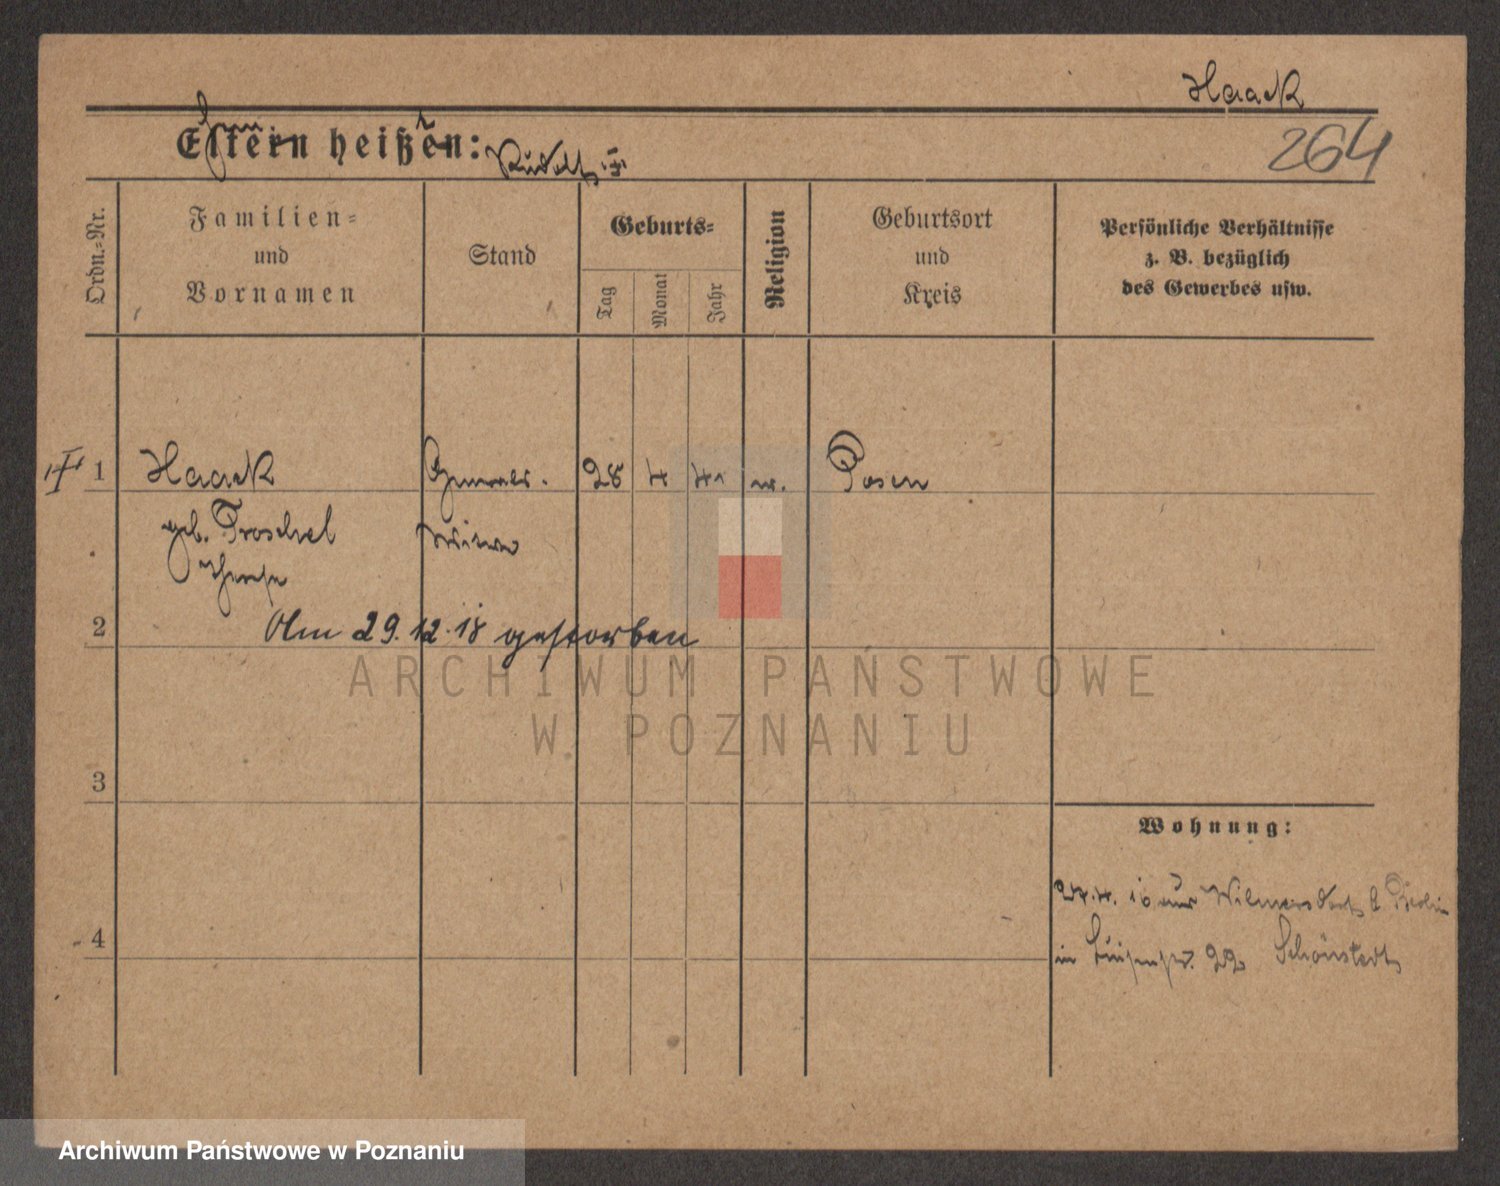 Haack
264
Eltern heißen: Rudolf
Ordn.-Nr.
Familien-
und
Vornamen
Stand
Geburts-
Tag
Monat
Jahr
Religion
Geburtsort
und
Kreis
Persönliche Verhältnisse
z. B. bezüglich
des Gewerbes usw.
1 Haack Generals- 28 4 41 Posen
geb. Troschel witwe
Therese
2 Am 29.12.18 gestorben
ARCHIWUM PAŃSTWOWE
W POZNANIU
3
Wohnung:
4
Wilmersdorf b Berlin
in Luisenstr. 22 Schönstedt
Archiwum Państwowe w Poznaniu